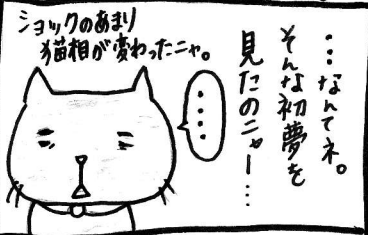 ショックのあまり
猫相が変わったニャ。
・・・なんてネ。
そんな初夢を
見たのニャー…
・・・・